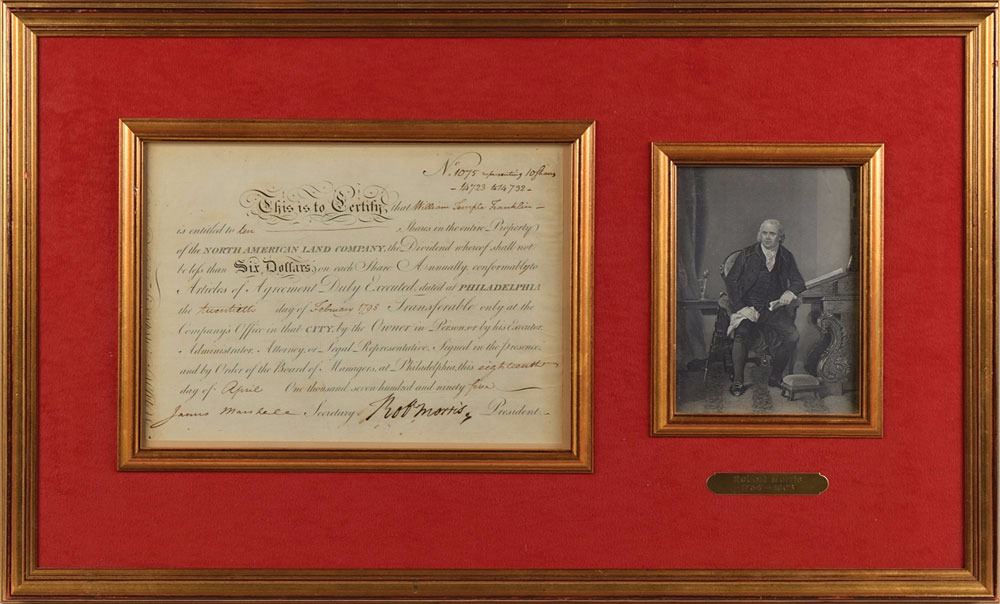 No. 1075 representing 10 Shares
- 14723 to 14732 -
This is to Certify, that William Temple Franklin -
is entitled to ten Shares in the entire Property
of the NORTH AMERICAN LAND COMPANY, the Dividend whereof shall not
be less than Six Dollars on each Share Annually, conformably to
Articles of Agreement Duly Executed, dated at PHILADELPHIA
the twentieth day of February 1795 Transferable only at the
Company's Office in that CITY, by the Owner in Person, or by his Executor,
Administrator, Attorney, or Legal Representative. Signed in the presence
and by Order of the Board of Managers, at Philadelphia, this eighteenth
day of April One thousand seven hundred and ninety five
James Marshall Secretary Robt Morris, President.
Robert Morris